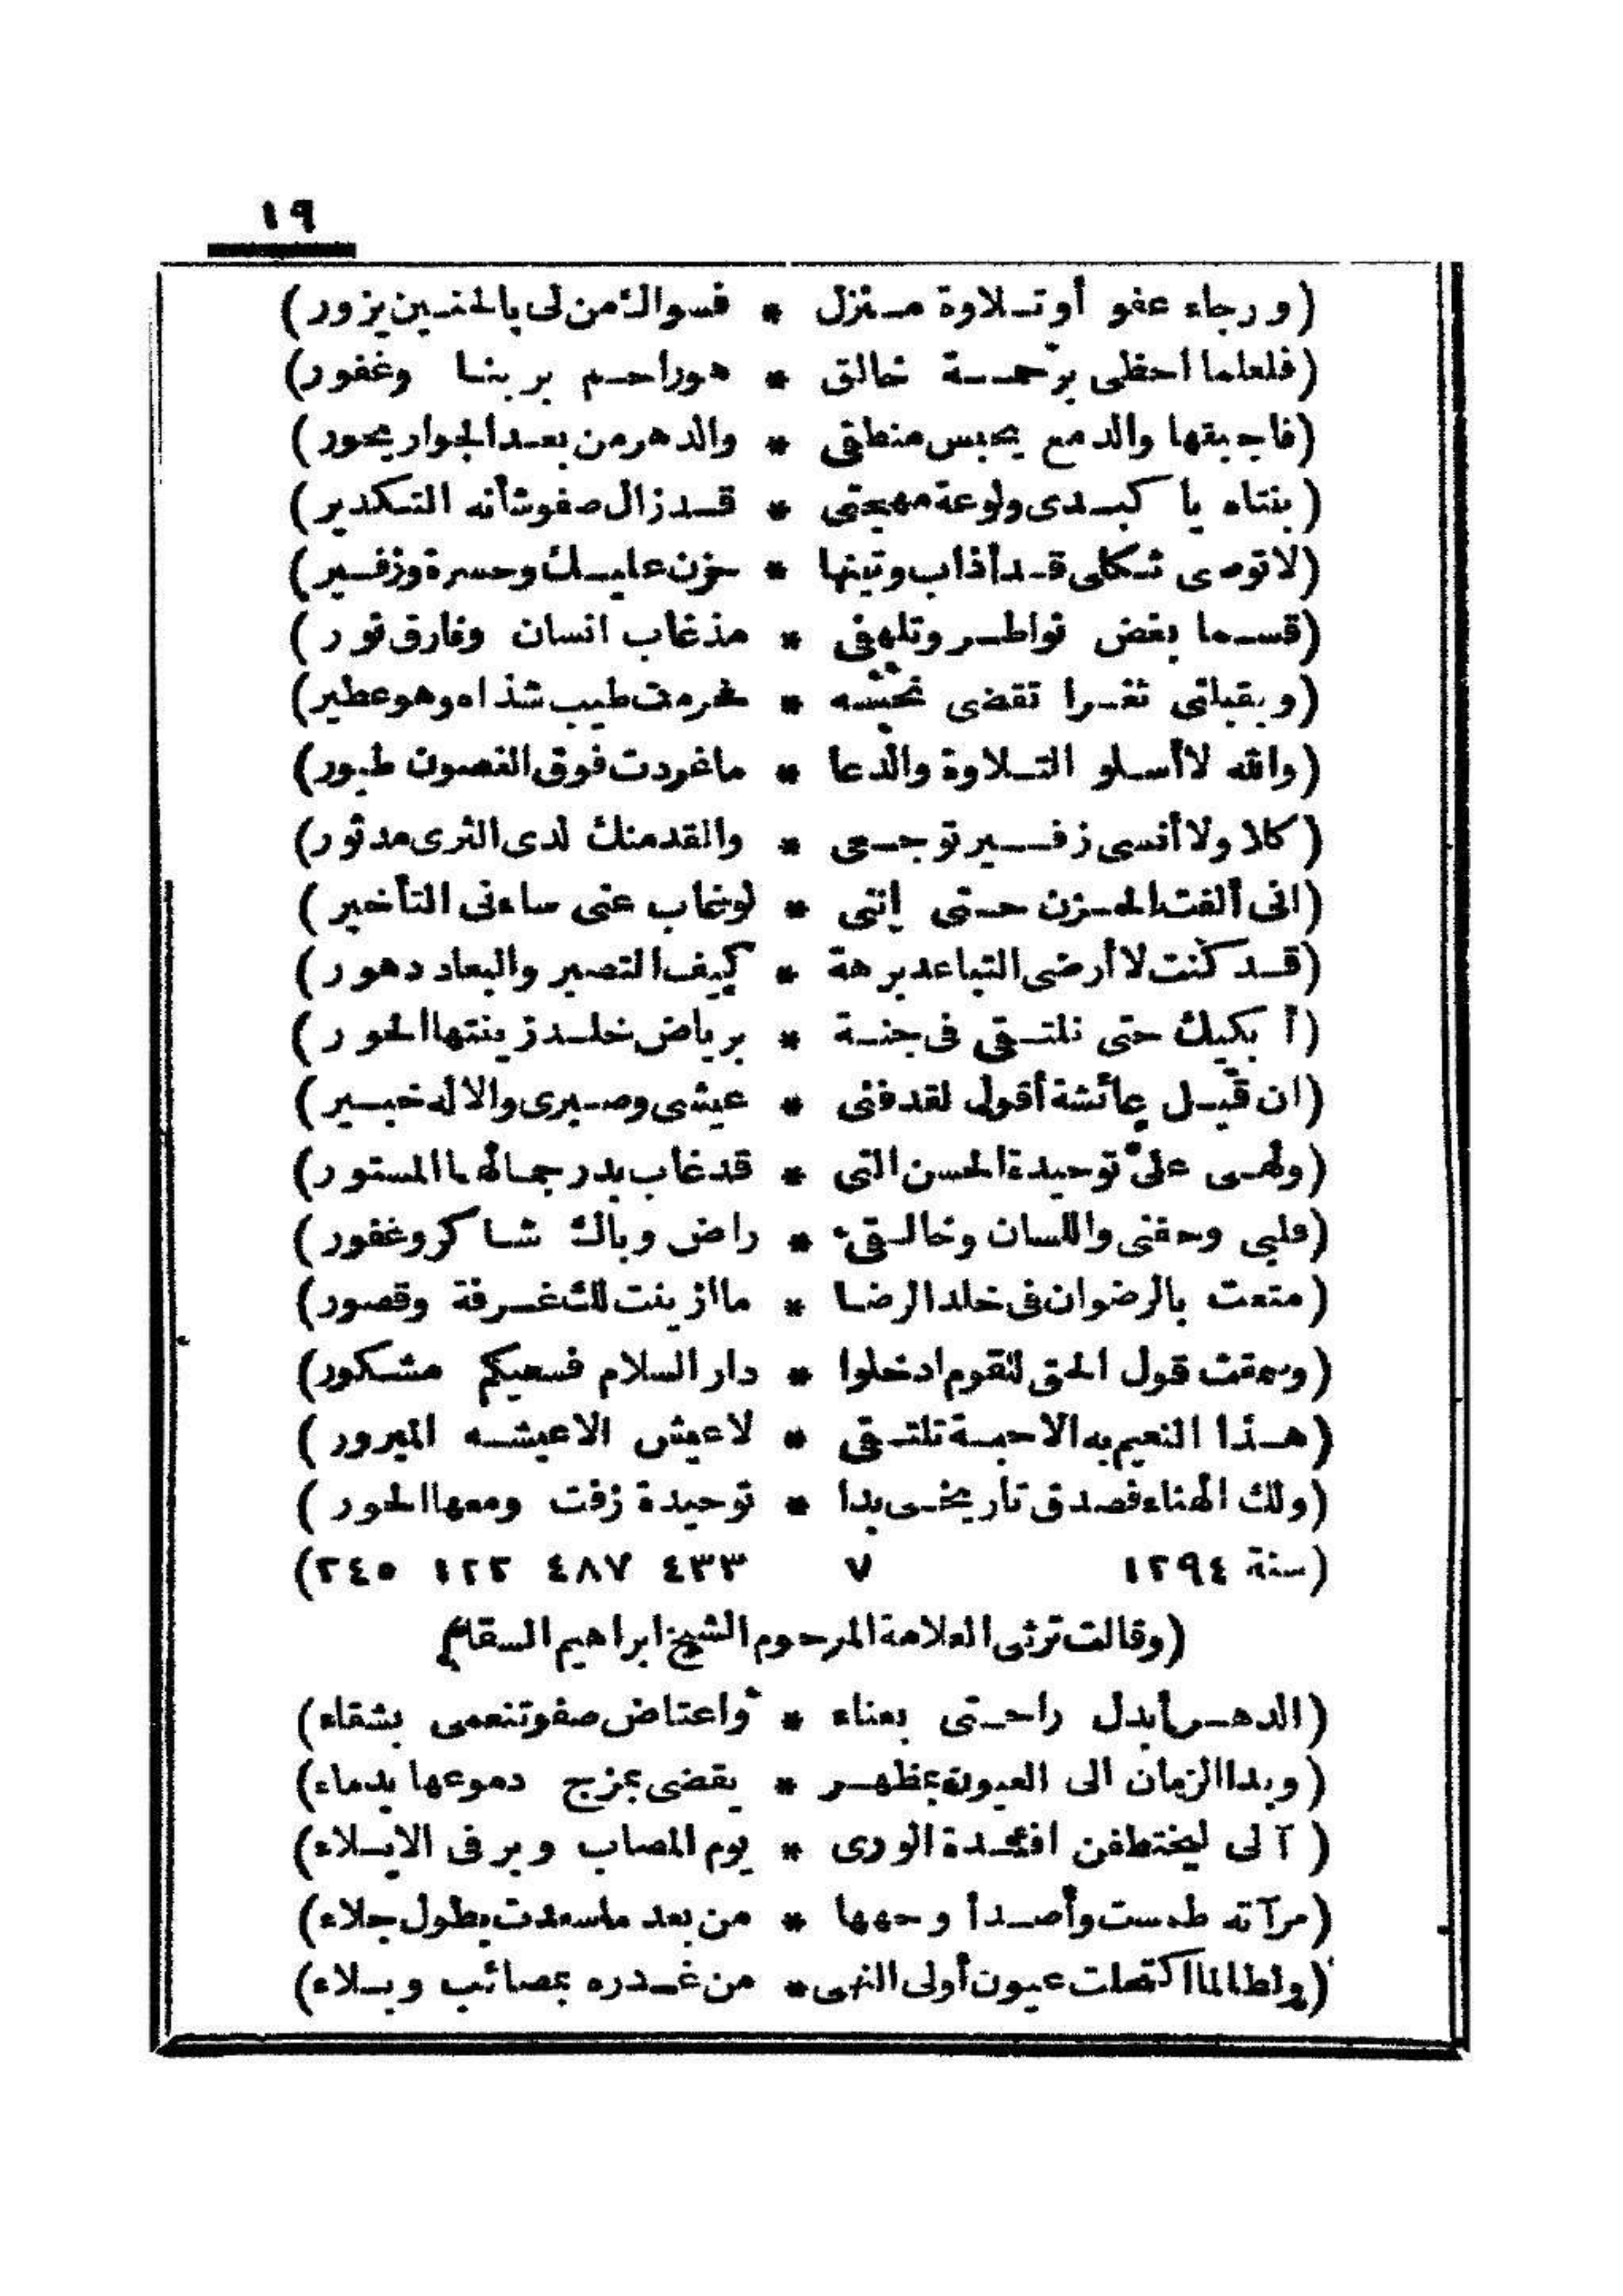 ١٩
(ورجاء عفو أو تلاوة منزل * فسواك من لى بالحنين يزور)
(فلعلما أحظى برحمة خالق * هو راحم بر بنا وغفور)
(فاجبتها والدمع يحبس منطقى * والدهر من بعد الجوار يجور)
(بنتاه يا كبدى ولوعة مهجتى * قد زال صفو شأنه التكدير)
(لا توصى ثكلى قد أذاب وتينها * حزن عليك وحسرة وزفير)
(قسما بغض نواظر وتلهفى * مذ غاب انسان وفارق نور)
(وبقبلتى ثغرا تقضى نحبه * فحرمت طيب شذاه وهو عطير)
(والله لا أسلو التلاوة والدعا * ما غردت فوق الغصون طيور)
(كلا ولا أنسى زفير توجعى * والقد منك لدى الثرى مدثور)
(انى ألفت الحزن حتى إننى * لو غاب عنى ساءنى التأخير)
(قد كنت لا أرضى التباعد برهة * كيف التصبر والبعاد دهور)
(أبكيك حتى نلتقى فى جنة * برياض خلد زينتها الحور)
(ان قيل عائشة أقول لقد فنى * عيشى وصبرى والاله خبير)
(ولهى على توحيدة الحسن التى * قد غاب بدر جمالها المستور)
(قلبى وجفنى واللسان وخالقى * راض وباك شاكر وغفور)
(متعت بالرضوان فى خلد الرضا * ما ازينت لك غرفة وقصور)
(وسمعت قول الحق للقوم ادخلوا * دار السلام فسعيكم مشكور)
(هذا النعيم به الاحبة تلتقى * لا عيش الا عيشه المبرور)
(ولك الهناء فصدق تاريخى بدا * توحيدة زفت ومعها الحور)
(سنة ١٢٩٤ ٧ ٤٣٣ ٤٨٧ ١٢٢ ٢٤٥)
(وقالت ترثى العلامة المرحوم الشيخ ابراهيم السقا)
(الدهر أبدل راحتى بعناء * واعتاض صفو تنعمى بشقاء)
(وبدا الزمان الى العيون بمظهر * يقضى بمزج دموعها بدماء)
(آلى ليختطفن افئدة الورى * يوم المصاب وبر فى الايلاء)
(مرآته طمست وأصدأ وجهها * من بعد ما سعدت بطول جلاء)
(ولطالما اكتحلت عيون أولى النهى * من غدره بمصائب وبلاء)